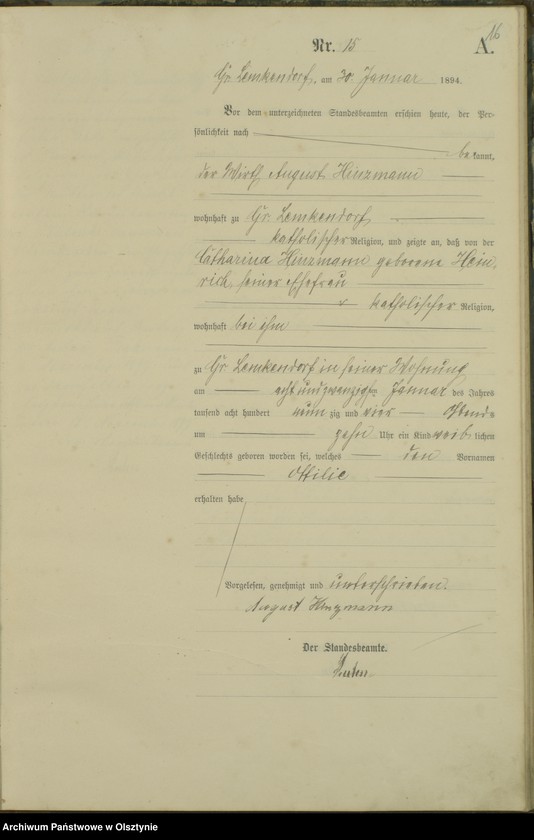 16
Nr. 15 A.
Gr. Lemkendorf, am 30. Januar 1894.
Vor dem unterzeichneten Standesbeamten erschien heute, der Per-
sönlichkeit nach
bekannt,
der Wirth August Hinzmann
wohnhaft zu Gr. Lemkendorf
katholischer Religion, und zeigte an, daß von der
Catharina Hinzmann geborene Hein,
rich, seiner Ehefrau
katholischer Religion,
wohnhaft bei ihm
zu Gr. Lemkendorf in seiner Wohnung
am acht und zwanzigsten Januar des Jahres
tausend acht hundert neun zig und vier Abends
um zehn Uhr ein Kind weiblichen
Geschlechts geboren worden sei, welches den Vornamen
Ottilie
erhalten habe
Vorgelesen, genehmigt und unterschrieben.
August Hinzmann
Der Standesbeamte.
Archiwum Państwowe w Olsztynie